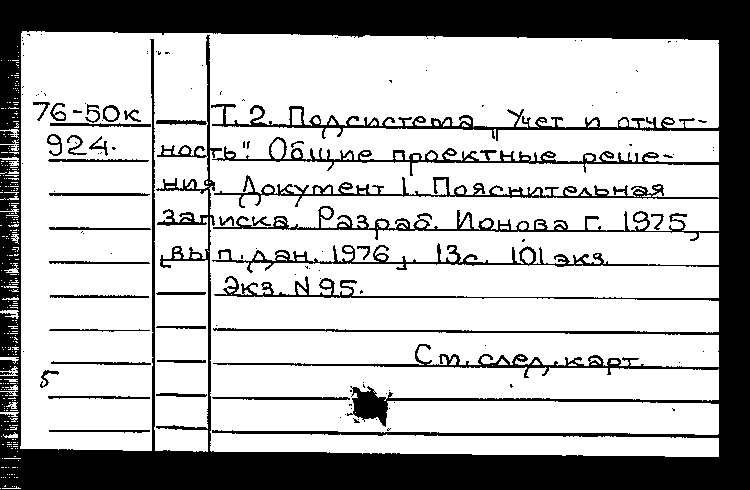 76-50к Т. 2. Подсистема „Учет и отчет-
924. ность". Общие проектные реше-
ния. Документ 1. Пояснительная
записка. Разраб. Ионова Г. 1975,
[вып. дан. 1976]. 13с. 101 экз.
Экз. N 95.
См. след. карт.
5